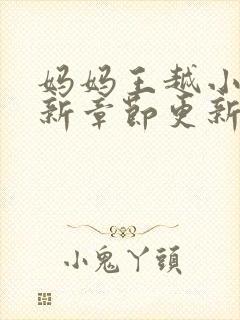 妈妈王越小
新章节更新
小鬼丫頭